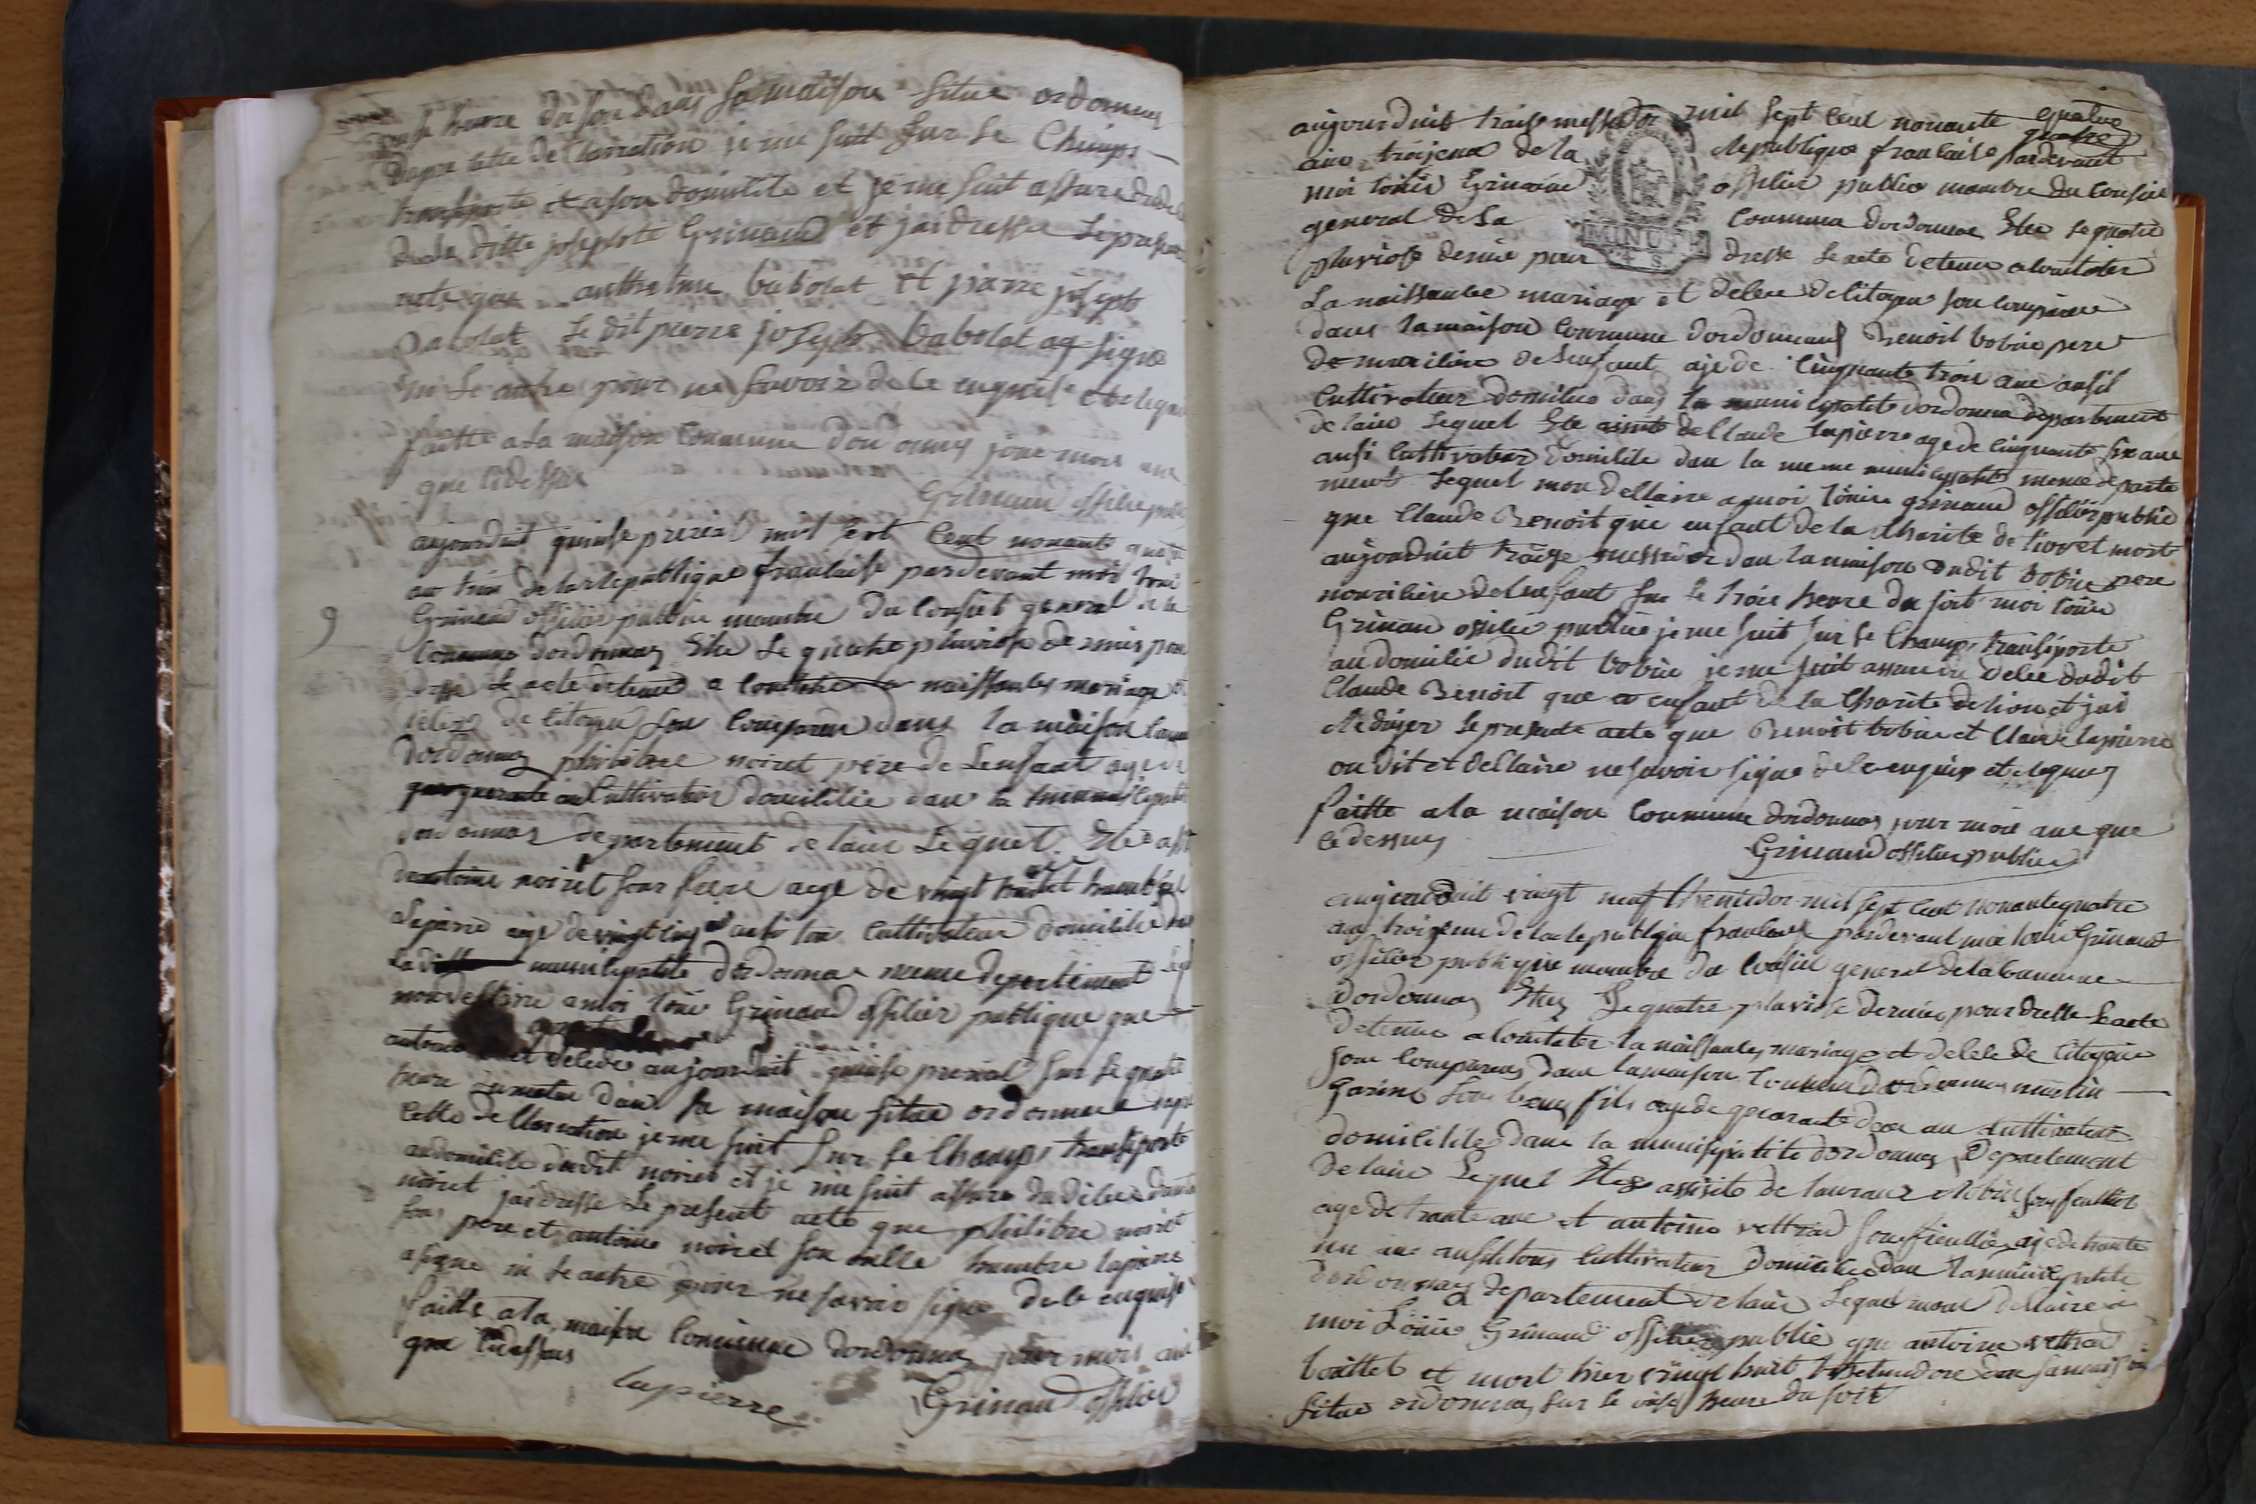 heure du soir dans sa maison situé ordonnas
dapre cette declaration je me suit sur le Champs
transporte et a son domicile et je me suit assure du deles
de la ditte josephte Grinand et jai dresse le presen
acte que anthelme babolat et pierre joseph
babolat le dit pierre joseph babolat aq signe
ni le autre pour ne savoir de le enquise et de leque
faitte a la maison Commune dordonnas jour mois ane
que cidessus
Grinand offilié public
aujourduit quinse prerial mil sept cent nonante quatre
an troi de la republique francaise pardevant moi loui
Grinand offilier public membre du Conseil general de la
Commune dordonnas Elu le quatre pluviose dernier pour
dresse le acte detenue a constater la naissances mariage et
deles de citoyens son Comparu dans la maison Commune
dordonnas philibere noiret pere de lenfant age de
quarante an Cultivateur domicilie dan la municipalite
dordonnas departement de lain Lequel Ete assi
dantoine noiret son frere age de vingt huit et humbe
lapierre age de vingt cinq ausi tou Cultivateur domicilie dans
la ditte municipalite dordonnas meme departement leq
mon declaire a moi loui Grinand offilier publique que
antoine noiret deledes aujourduit quinse prerial sur le quatre
heure du matin dan sa maison situe ordonnas dapre
cette declaration je me suit sur le Champs transporte
au domicile dudit noiret et je me suit assure du deles dantoi
noiret jai dresse le present acte que philibre noiret
son pere et antoine noiret son oncle humbre lapierre
a signe ni le autre pour ne savoir signe de le enquise
faitte a la maison Commune dordonnas jour mois ane
que cidessus
lapierre Grinand offilier
9
aujourduit traise messidor mil sept cent nonante quatre
ane troijeme de la republique francaise pardevant
moi loüis Grinand offilier public membre du Conseil
general de la Commune dordonnas Elu le quatre
pluviose dernie pour dresse le acte detenue a constater
La naissance mariage et deles de citoyens son Comparu
dans la maison Commune dordonnas Benoit bobin pere
de nouriliere de lenfant aje de Cinquante troi ane ausi
Cultivateur domicilie dans la municipalite dordonna departement
de lain lequel Ete assisté de Claude lapierre age de cinquante six ane
ausi Cultivateur domicilie dan la meme municipalité meme departe
ment lequel mon declaire a moi loüis grinand offilier public
que Claude Benoit que enfant de la Charite de lion et mort
aujourduit traize messidor dan la maison dudit bobin pere
nouriliere de lenfant sur le troi heure du soit moi loüis
Grinand offilié publié je me suit sur le Champs transporte
au domicilie dudit bobin je me suit assure du deles dudit
Claude Benoit que enfant de la Charite de lion et jai
Redijer le presente acte que Benoit bobin et Claude lapierre
on dit et declaire ne savoir signe de le enquise et leques
faitte a la maison Commune dordonnas jour mois ane que
ce dessus
Grinand offilier public
aujourduit vingt neuf thermidor mil sept cent nonante quatre
an troijeme de la republique francaise pardevant moi loui Grinand
offilier publique membre du Conseil general de la Commune
dordonnas Elu le quatre pluviose dernier pour dresse le acte
detenue a constater la naissances mariage et deles de citoyens
son Comparus dans la maison Commune dordonnas martin
garins son beau fils age de quarante deux an cultivateur
domicilie dans la municipalite dordonnas Departement
de lain Lequel Ete assisté de lauranz Robin son fieullier
age de trante ane et antoine vettrad son fieullie aje de trante
un ane ausi tous Cultivateur domicilie dan la municipalite
dordonnas departement de lain lequel mon declaire a
moi Loüis Grinand offilier public que antoine vettrad
et mort hier vingt huit thermidore dan sa maison
situe ordonnas sur le onse heure du soit
MINUTE
4 S